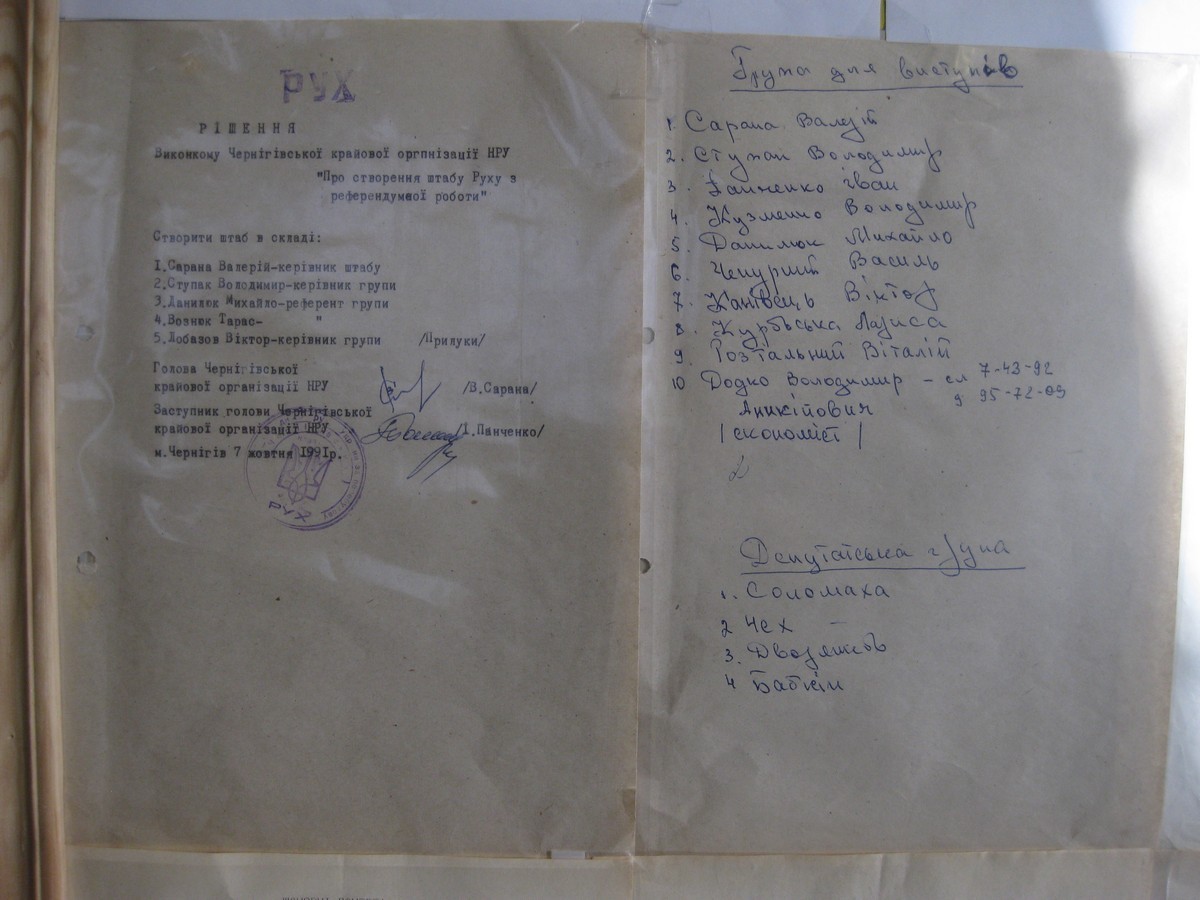 РУХ
РІШЕННЯ
Виконкому Чернігівської крайової оргпнізації НРУ
"Про створення штабу Руху з
референдумної роботи"
Створити штаб в складі:
1.Сарана Валерій-керівник штабу
2.Ступак Володимир-керівник групи
3.Данилюк Михайло-референт групи
4.Вознюк Тарас- "
5.Лобазов Віктор-керівник групи /Прилуки/
Голова Чернігівської
крайової організації НРУ /В.Сарана/
Заступник голови Чернігівської
крайової організації НРУ /І.Панченко/
м.Чернігів 7 жовтня 1991р.
РУХ
Група для виступів
1. Сарана Валерій
2. Ступак Володимир
3. Іван
4. Кузменко Володимир
5. Данилюк Михайло
6. Чепурний Василь
7. Канівець Віктор
8. Курбська Лариса
9. Розтальний Віталій
10 Додко Володимир – сл 7-43-92
д 95-72-03
Аникітович
/економіст/
Депутатська група
1. Соломаха
2 Чех –
3. Дворяшов
4 Бабкін